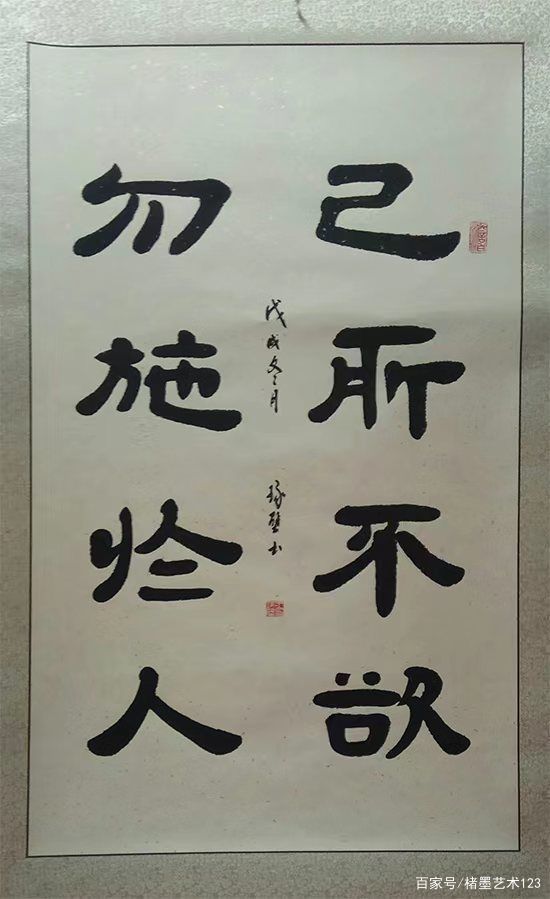 己所不欲
勿施於人
戊戌冬月
琢壁书
百家号/楮墨艺术123